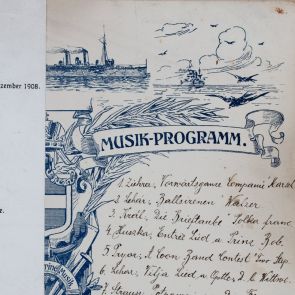 zember 1908.
MUSIK-PROGRAMM.
1. Ziehrer, Vorwärts ganze Companie Marsch
2. Lehar, Ballsirenen Walzer
3. Král, Die Brieftaube Polka franc
4. Huszka, Entrée Lied a. Prinz Bob.
5. Pryor, A Coon Band Contest Two Step
6. Lehar, Vilja Lied a. Optte. d. l. Wittwe.
7. Strauss
e.
Musik